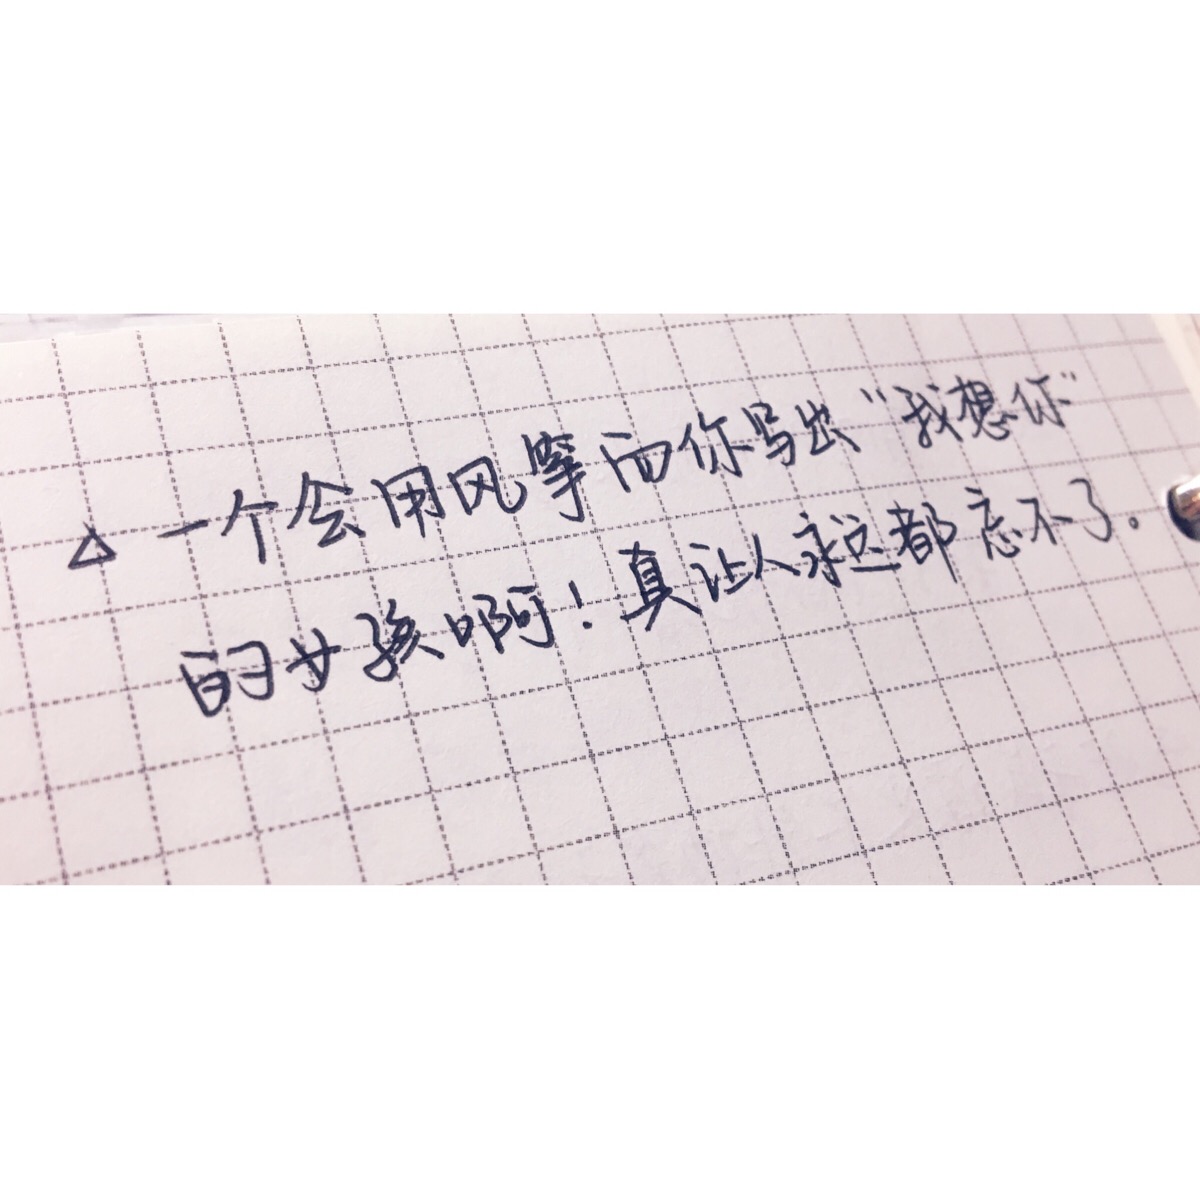 △ 一个会用风筝向你写出“我想你”
的女孩啊！真让人永远都忘不了。